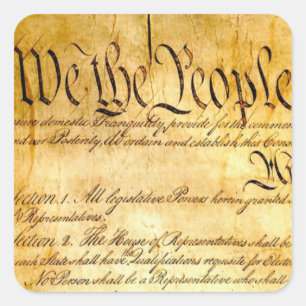 We the People
sure domestic Tranquility, provide for the common
nd our Posterity, do ordain and establish this Cons
Section. 1. All legislative Powers herein granted s
Representatives.
Section. 2. The House of Representatives shall be
each State shall have the Qualifications requisite for Elector
No Person shall be a Representative who shal